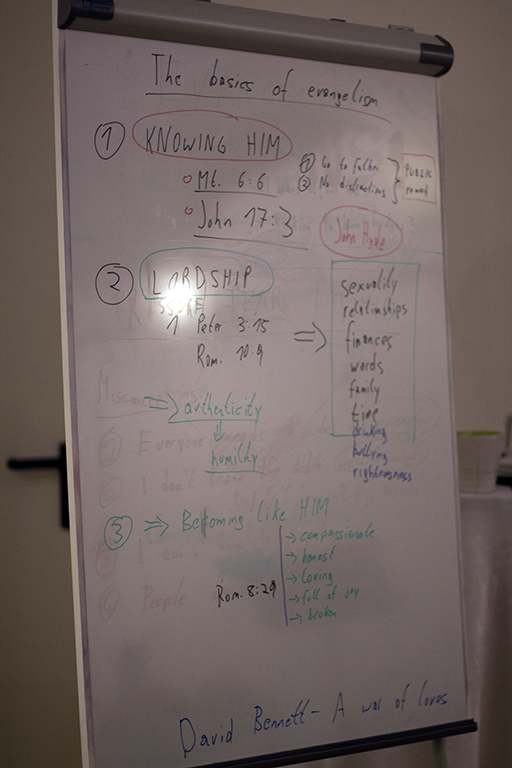 The basics of evangelism
① KNOWING HIM
Mt. 6:6
① Go to father
② No distractions
PUBLIC
reward
John 17:3
John Hyde
② LORDSHIP
1 Peter 3:15
Rom. 10:9
⇒
sexuality
relationships
finances
words
family
time
drinking
bullying
righteousness
⇒ authenticity
⇓
humility
Everyone
I don't
③ ⇒ Becoming like HIM
→ compassionate
→ honest
→ loving
→ full of joy
→ broken
Rom. 8:29
People
David Bennett - A war of loves